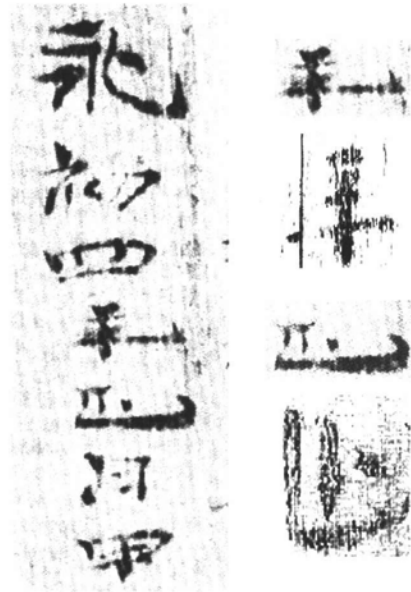 永初四年正月甲
年
正